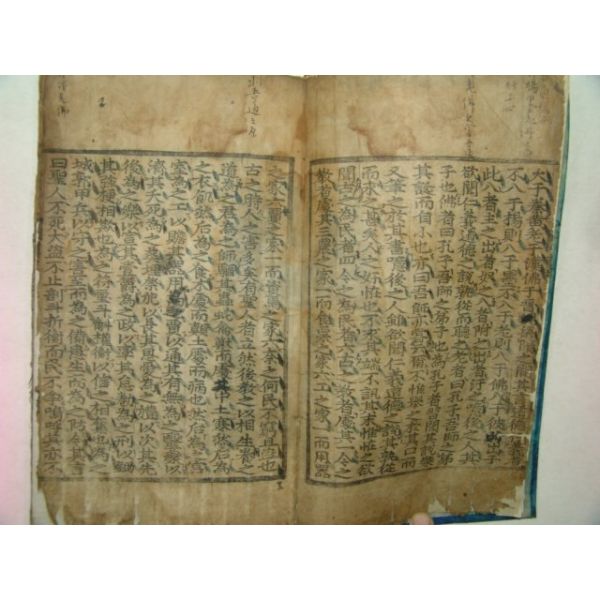 火于秦黃老于漢佛于晉魏梁隋之間其言道德仁義者
不入于楊則入于墨不入于老則入于佛入于彼必出于
此入者主之出者奴之入者附之出者汙之噫後之人其
欲聞仁義道德之說孰從而聽之老者曰孔子吾師之弟
子也佛者曰孔子吾師之弟子也為孔子者習聞其說樂
其誕而自小也亦曰吾師亦嘗云爾不惟舉之於其口而
又筆之於其書噫後之人雖欲聞仁義道德之說其孰從
而求之甚矣人之好怪也不求其端不訊其末惟怪之欲
聞古之為民者四今之為民者六古之教者處其一今之
教者處其三農之家一而食粟之家六工之家一而用器
之家六賈之家一而資焉之家六奈之何民不窮且盜也
古之時人之害多矣有聖人者立然後教之以相生養之
道為之君為之師驅其蟲蛇禽獸而處其中土寒然後為
之衣飢然後為之食木處而顚土處而病也然後為之宮
室為之工以贍其器用為之賈以通其有無為之醫藥以
濟其夭死為之葬埋祭祀以長其恩愛為之禮以次其先
後為之樂以宣其壹鬱為之政以率其怠勌為之刑以鋤
其強梗相欺也為之符璽斗斛權衡以信之相奪也為之
城郭甲兵以守之害至而為之備患生而為之防今其言
曰聖人不死大盜不止剖斗折衡而民不爭嗚呼其亦不